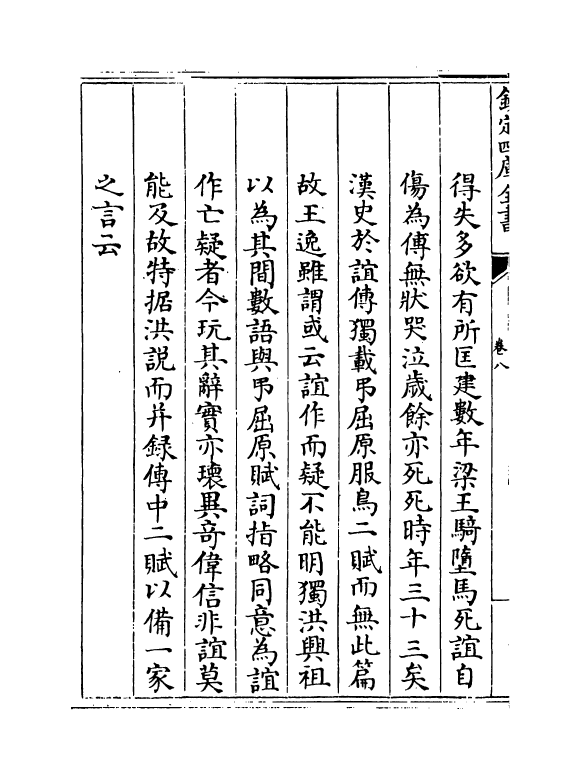 欽定四庫全書
卷八
得失多欲有所匡建數年梁王騎墮馬死誼自
傷為傅無狀哭泣歲餘亦死死時年三十三矣
漢史於誼傳獨載弔屈原服鳥二賦而無此篇
故王逸雖謂或云誼作而疑不能明獨洪興祖
以為其間數語與弔屈原賦詞指略同意為誼
作亡疑者今玩其辭實亦瓌異竒偉信非誼莫
能及故特据洪説而并録傳中二賦以備一家
之言云